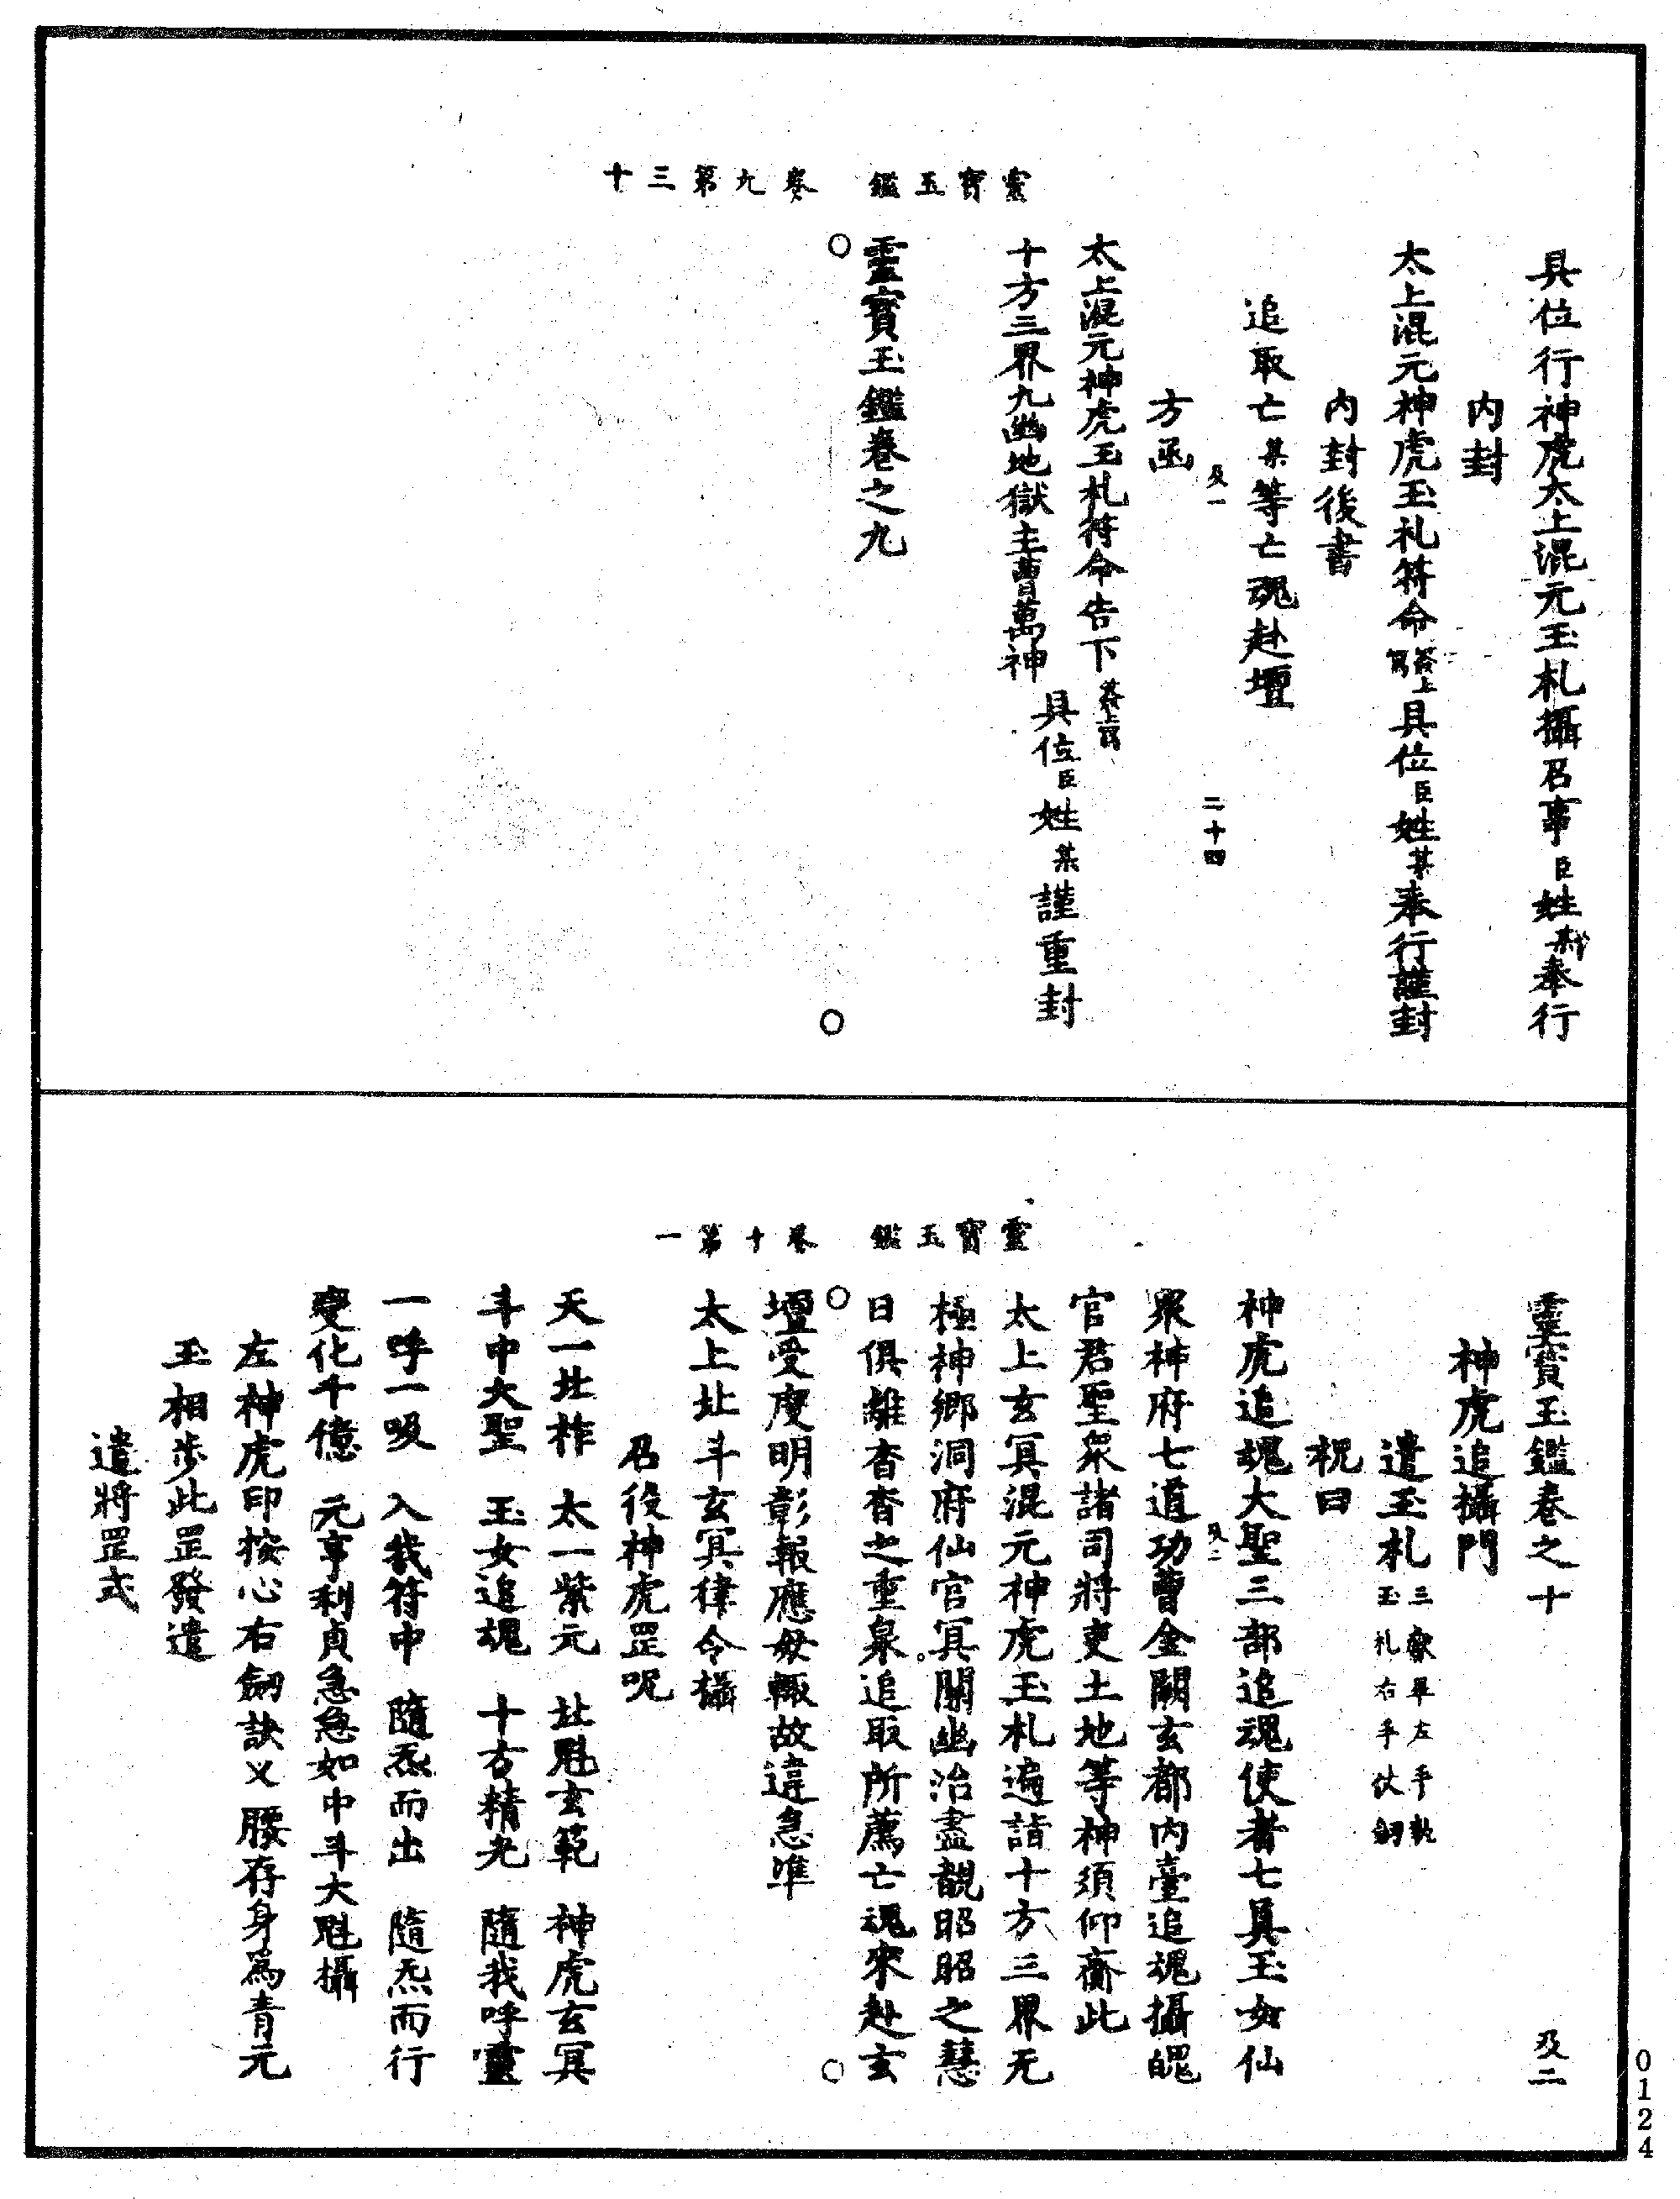 靈寶玉鑑 卷九第三十
具位行神虎太上混元玉札攝召事臣姓某奉行
内封
太上混元神虎玉札符命簽上寫具位臣姓某奉行謹封
内封後書
追取亡某等亡魂赴壇
及一 二十四
方函
太上混元神虎玉札符命告下簽上寫
十方三界九幽地獄主曹萬神
具位臣姓某謹重封
靈寶玉鑑卷之九
靈寶玉鑑 卷十第一
靈寶玉鑑卷之十 及二
神虎追攝門
遣玉札三獻畢左手執玉札右手仗劒
祝曰
神虎追魂大聖三部追魂使者七真玉女仙
及二
眾神府七道功曹金闕玄都内臺追魂攝魄
官君聖衆諸司將吏土地等神須仰齎此
太上玄冥混元神虎玉札遍詣十方三界无
極神鄉洞府仙官冥關幽治盡覩昭昭之慧
日俱離杳杳之重泉追取所薦亡魂來赴玄
壇受度明彰報應毋輒故違急準
太上北斗玄冥律令攝
召役神虎罡呪
天一北柞 太一紫元 北魁玄範 神虎玄冥
斗中大聖 玉女追魂 十方精光 隨我呼靈
一呼一吸 入我符中 隨炁而出 隨炁而行
變化千億 元亨利貞急急如中斗大魁攝
左神虎印按心右劒訣乂腰存身爲青元
玉相步此罡發遣
遣將罡式
0124